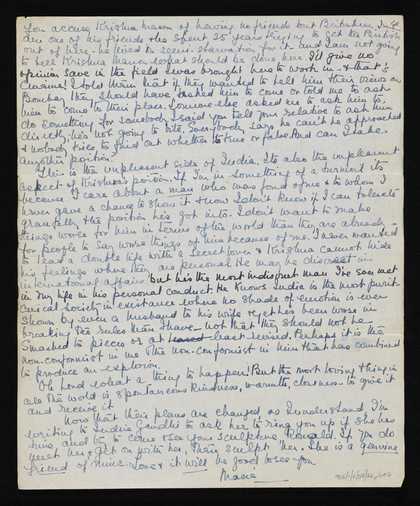 You accuse Krishna Menon of having no friends but Britishers. I
am one of his friends & he spent 25 years trying to get the British
out of here. he tried to seem starvation for it. and I am not going
to tell Krishna Menon what should be done here. I'd give no
opinion save in the field I was brought here to work in & that's
Cinema! I told them that if they wanted to tell him their views on
Bombay they should have asked him to come or told me to ask
him to come in their place. Someone else asked me to ask him to
do something for somebody. I said you tell your relative to ask him
directly, he's not going to bite. Somebody says he can't be approached
& nobody tries to find out whether it's true or false. And can I take
another position?
This is the unpleasant side of India. Its also the unpleasant
aspect of Krishna's position. If I'm in something of a torment its
because I care about a man who was fond of me & to whom I
never gave a chance to show it & now I don't know if I can tolerate
gracefully the position he's got into. I don't want to make
things worse for him in terms of his world than they are already
for people to say worse things of him because of me. I never wanted
to lead a double life with a secret lover & Krishna cannot hide
his feelings where they are personal. He may be discreet in
international affairs but he's the most indiscreet man I've ever met
in my life in his personal conduct. He knows India is the most purit-
anical society in existance where no shade of emotion is ever
shown by even a husband to his wife together been worse in
breaking the rules than I have. not that they should not be
smashed to pieces or at least eased. Perhaps it is the
non-conformist in me & the non-conformist in him that has combined
to produce an explosion.
Oh Lord what a thing to happen! But the most loving thing in
all the world is spontaneous kindness, warmth, closeness to give it
and receive it.
Now that their plans are changed as I understand, I'm
writing to Indira Gandhi to ask her to ring you up if she has
time and to come see your sculpture, Ronald. If you do
meet her & get on with her, then sculpt her. She is a genuine
friend of mine. Love & it will be good to see you
Marie